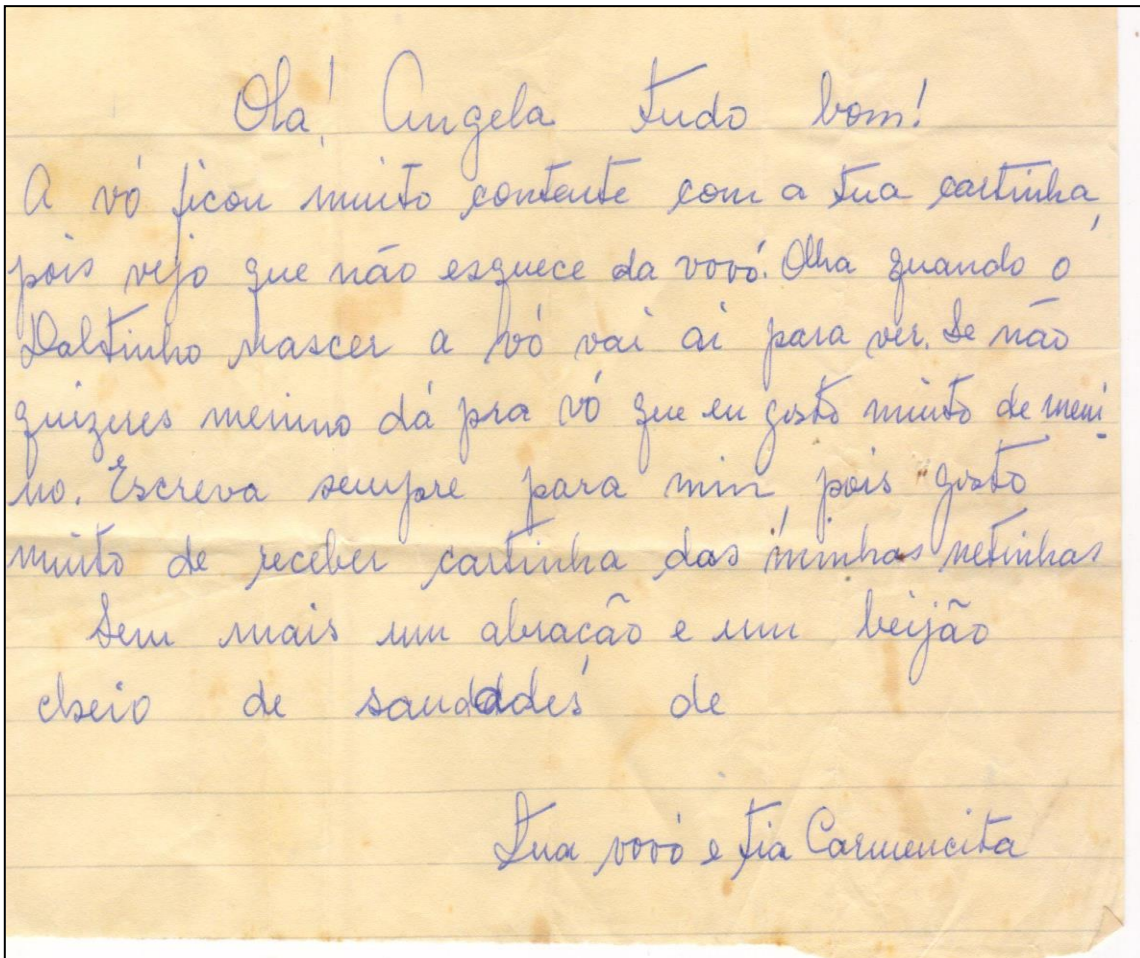 Olá! Angela tudo bom!
A vó ficou muito contente com a tua cartinha,
pois vejo que não esquece da vovó. Olha quando o
Daltinho nascer a vó vai ai para ver. Se não
quizeres menino dá pra vó que eu gosto muito de meni
no. Escreva sempre para min pois gosto
muito de receber cartinha das minhas netinhas
Sem mais um abração e um beijão
cheio de saudades de
Tua vovó e tia Carmencita